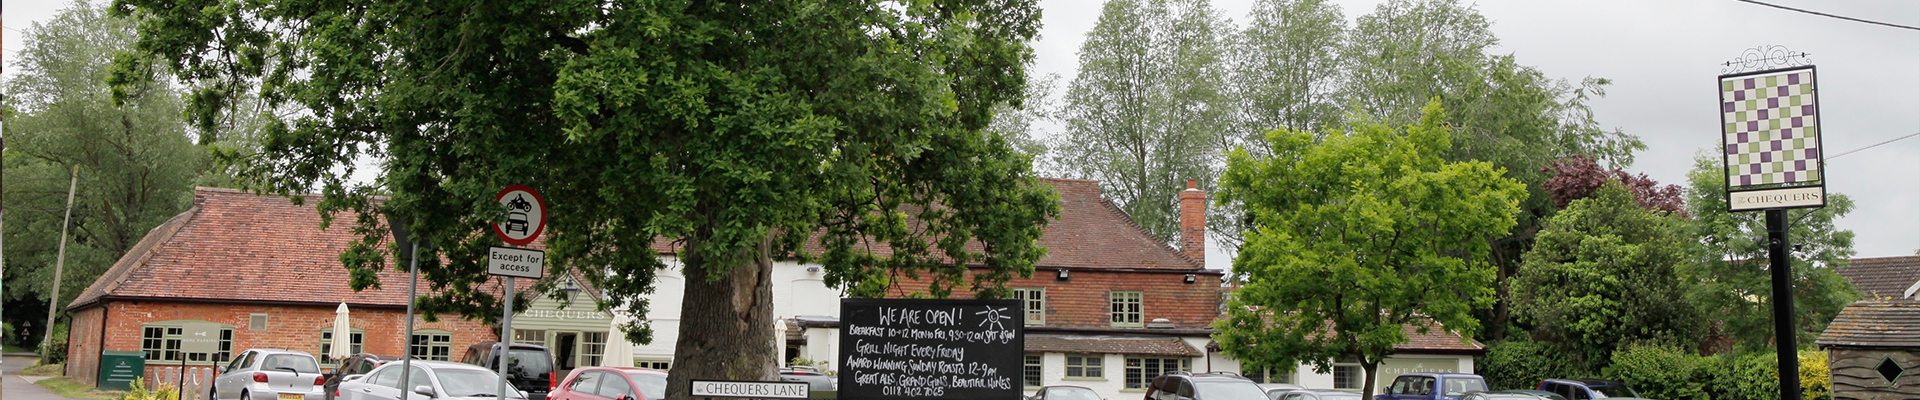 The CHEQUERS
Except for
access
CHEQUERS
WE ARE OPEN!
BREAKFAST 10-12 MON TO FRI, 9.30-12 ON SAT & SUN
GRILL NIGHT EVERY FRIDAY
AWARD WINNING SUNDAY ROASTS 12-9PM
GREAT ALES, GRAND GINS, BEAUTIFUL WINES
0118 402 7065
CHEQUERS LANE
CHEQUERS